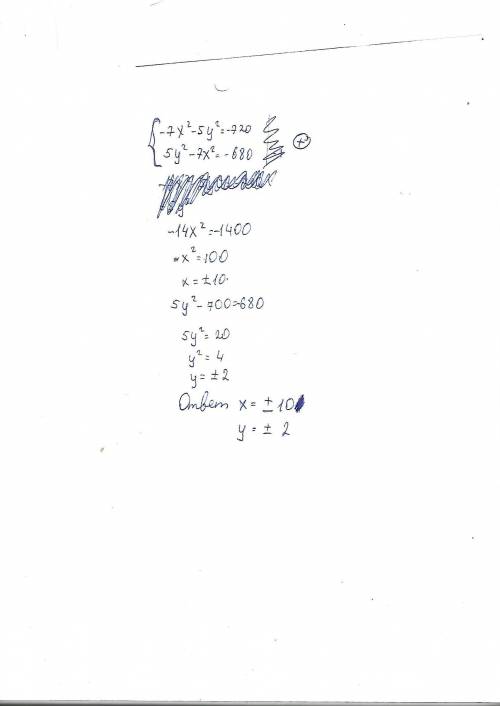 -7x²-5y²=-720
5y²-7x²=-680 (+)
-14x²=-1400
x²=100
x=±10
5y²-700=-680
5y²=20
y²=4
y=±2
Ответ x=±10
y=±2